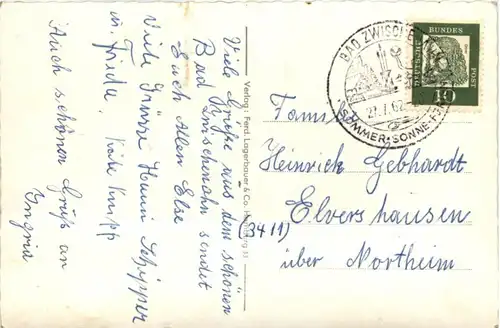 Viele Grüße aus dem schönen
Bad Zwischenahn sendet
Euch Allen Else
Viele Grüsse Hanni Schipper
u. Frieda. Käte Knipp
Auch schönen Gruß an
Ingrid
Verlag: Ferd. Lagerbauer & Co. Hamburg 33
BAD ZWISCHE
27.7.62
SOMMER-SONNE-
DEUTSCHE BUNDESPOST
10
Familie
Heinrich Gebhardt
(3411)
Elvershausen
über Northeim